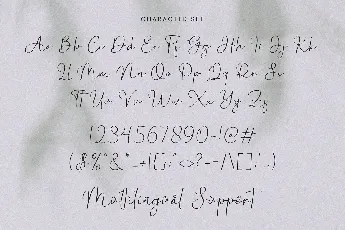 CHARACTER SET
Aa Bb Cc Dd Ee Ff Gg Hh Ii Jj Kk
Ll Mm Nn Oo Pp Qq Rr Ss
Tt Uu Vv Ww Xx Yy Zz
1234567890-!@#
Multilingual Support